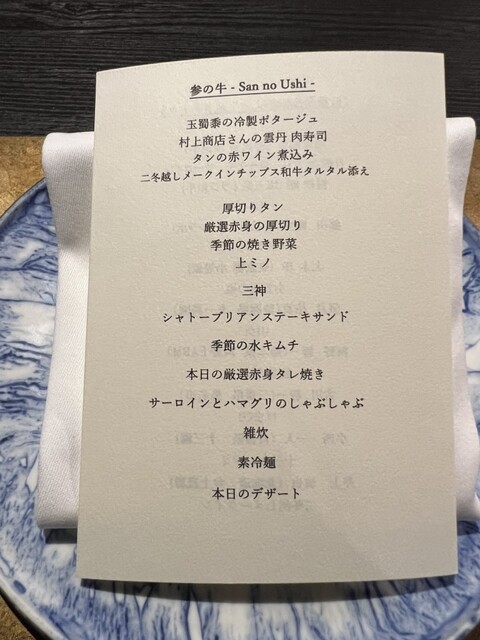 参の牛 - San no Ushi -
玉蜀黍の冷製ポタージュ
村上商店さんの雲丹 肉寿司
タンの赤ワイン煮込み
二冬越しメークインチップス和牛タルタル添え
厚切りタン
厳選赤身の厚切り
季節の焼き野菜
上ミノ
三神
シャトーブリアンステーキサンド
季節の水キムチ
本日の厳選赤身タレ焼き
サーロインとハマグリのしゃぶしゃぶ
雑炊
素冷麺
本日のデザート